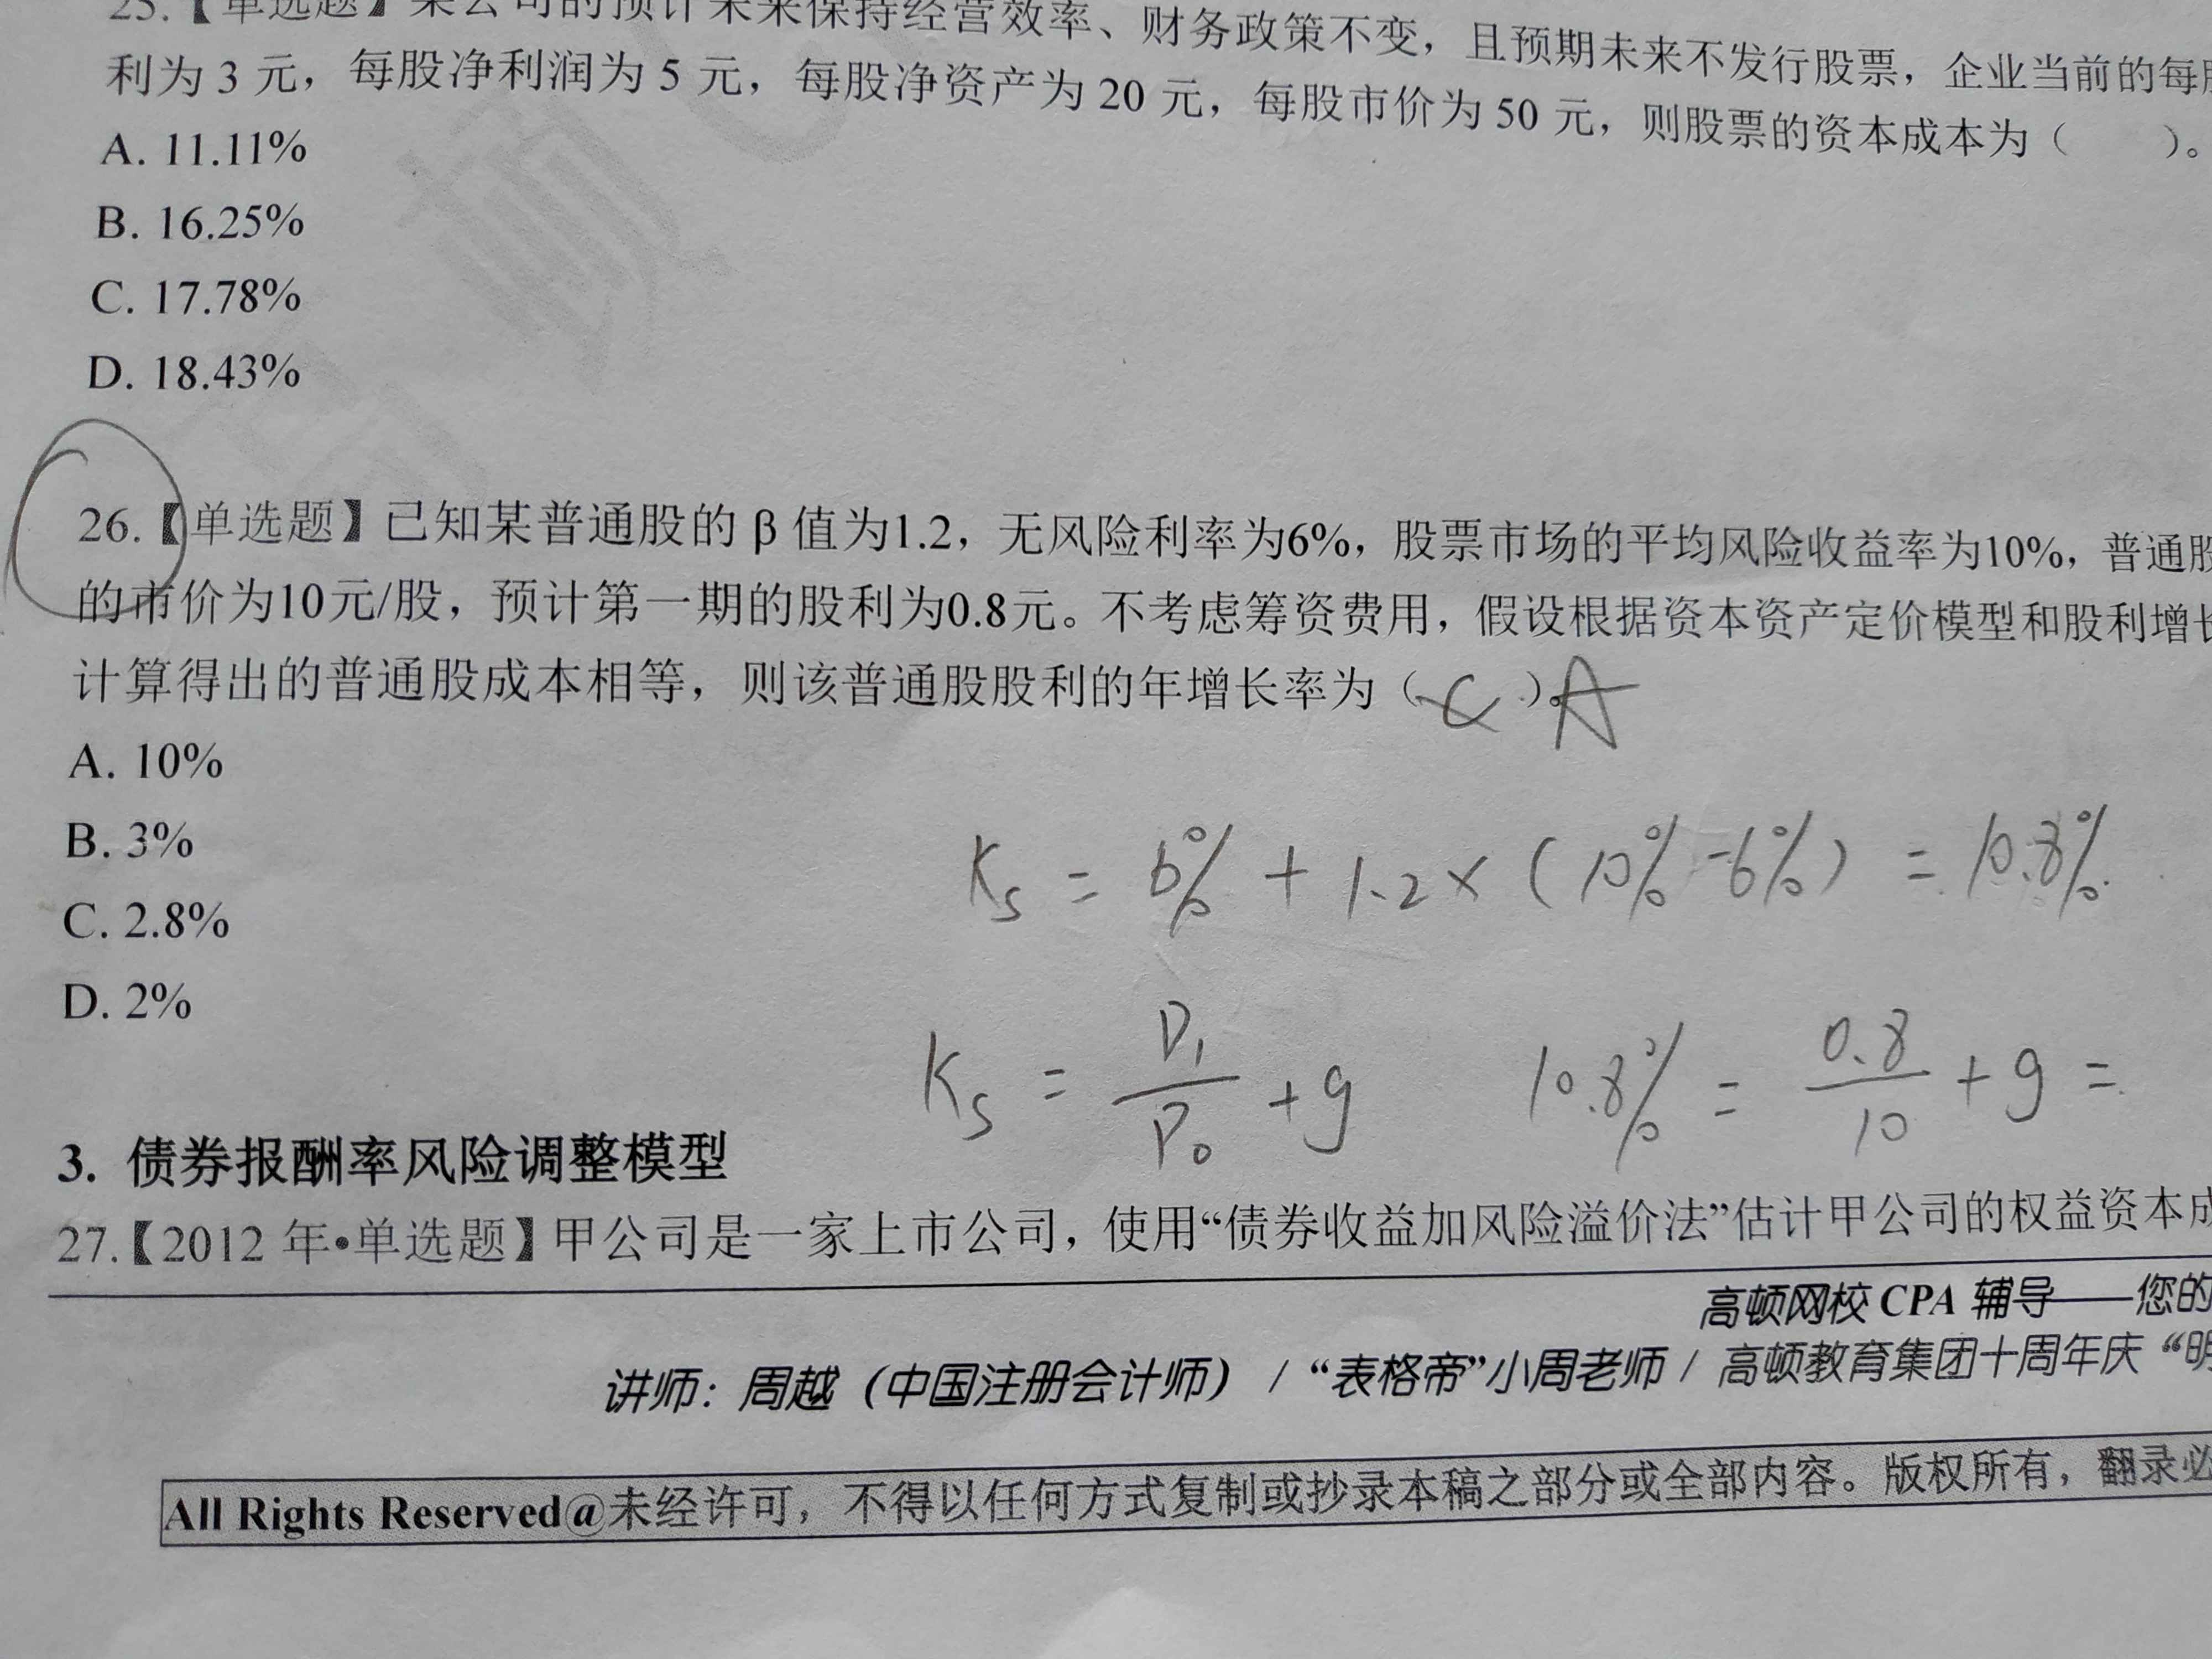 25.【单选题】某公司的预计未来保持经营效率、财务政策不变，且预期未来不发行股票，企业当前的每股
利为 3 元，每股净利润为 5 元，每股净资产为 20 元，每股市价为 50 元，则股票的资本成本为（ ）。
A. 11.11%
B. 16.25%
C. 17.78%
D. 18.43%
26.【单选题】已知某普通股的 β 值为1.2，无风险利率为6%，股票市场的平均风险收益率为10%，普通股
的市价为10元/股，预计第一期的股利为0.8元。不考虑筹资费用，假设根据资本资产定价模型和股利增长
计算得出的普通股成本相等，则该普通股股利的年增长率为（ C ）。A
A. 10%
B. 3%
C. 2.8%
D. 2%
Ks = 6% + 1.2 × ( 10% - 6% ) = 10.8%.
Ks = D1/P0 + g 10.8% = 0.8/10 + g =
3. 债券报酬率风险调整模型
27.【2012 年•单选题】甲公司是一家上市公司，使用“债券收益加风险溢价法”估计甲公司的权益资本成
高顿网校 CPA 辅导——您的
讲师：周越（中国注册会计师） / “表格帝”小周老师 / 高顿教育集团十周年庆 “明
All Rights Reserved@未经许可，不得以任何方式复制或抄录本稿之部分或全部内容。版权所有，翻录必